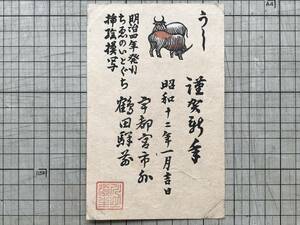 謹賀新年
昭和十二年一月吉日
宇都宮市外
鶴田駅前
うし
明治四年発行
ちゑのいとぐち
挿絵模写